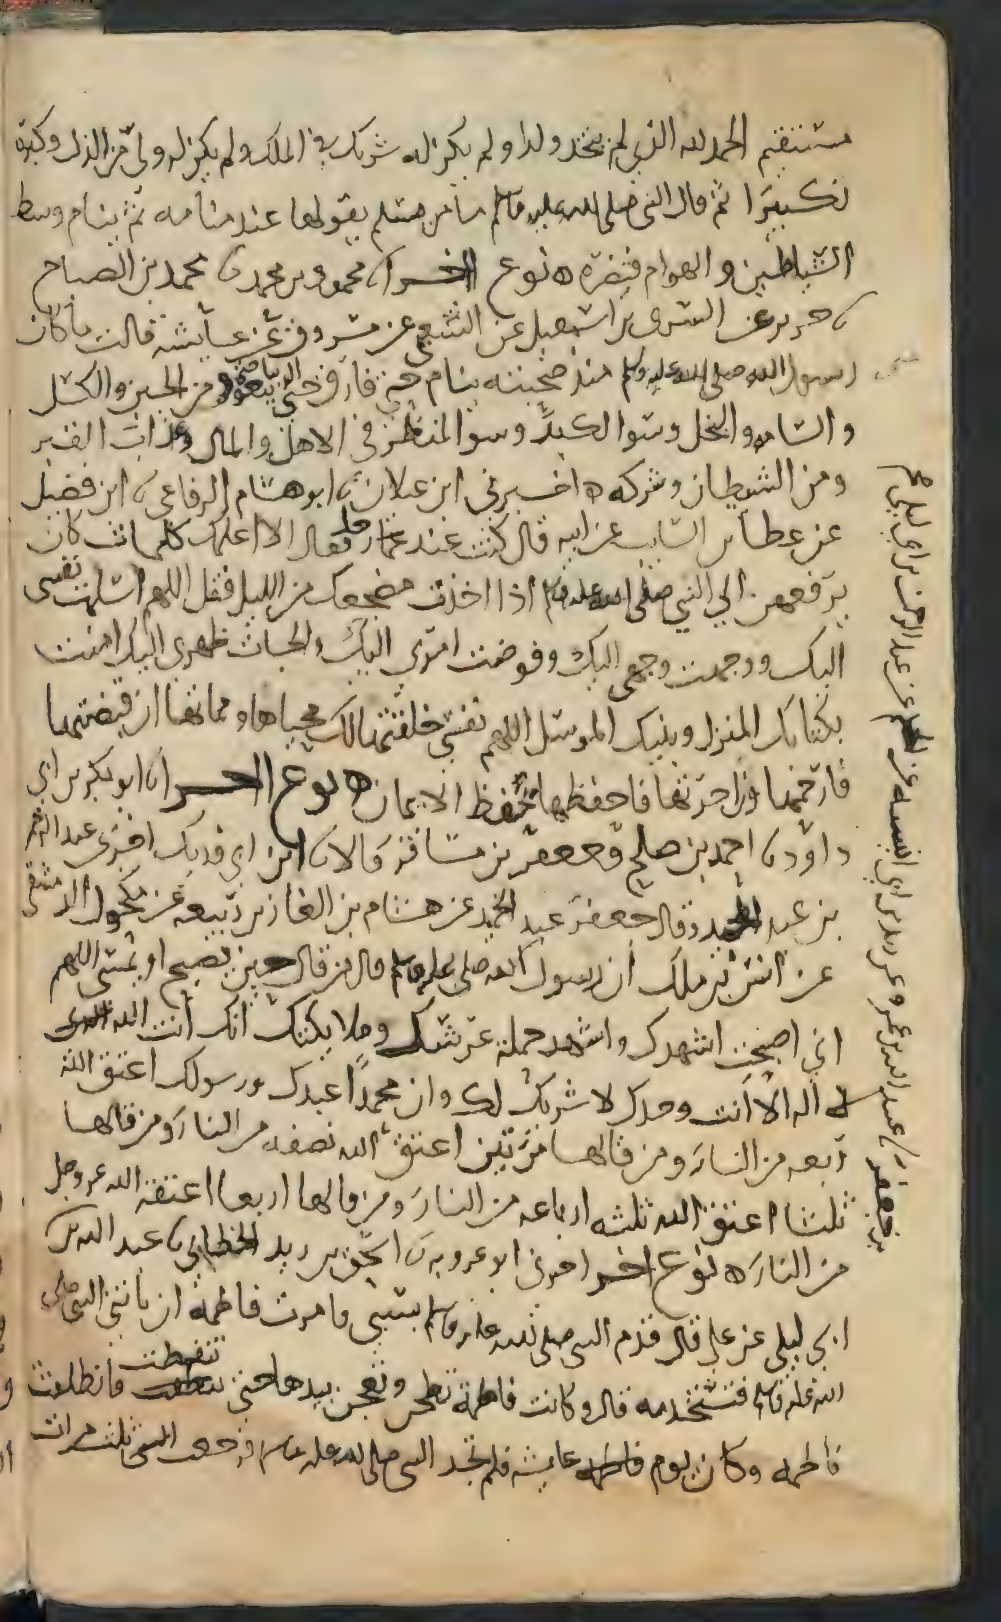 مستقيم الحمد لله الذي لم يتخذ ولدا ولم يكن له شريك في الملك ولم يكن له ولي من الذل وكبره
تكبيرا ثم قال النبي صلى الله عليه وسلم ما من مسلم يقولها عند منامه ثم ينام وسط
الشياطين والهوام فتضره ه نوع اخر محمود بن محمد محمد بن الصباح
عن السري بن اسمعيل عن الشعبي عن مسروق عن عايشة قالت ما كان
رسول الله صلى الله عليه وسلم منذ صحبته ينام حتى فارق الدنيا حتى يتعوذ من الجبن والكسل
والسامه والبخل وسوا الكبر وسوا المنظر في الاهل والمال وعذاب القبر
ومن الشيطان وشركه ه اخبرني ابو هشام الرفاعي ابن فضيل
عن عطا بن السايب عن ابيه قال كنت عند عمار فقال الا اعلمك كلمات كان
يرفعهن الى النبي صلى الله عليه وسلم اذا اخذت مضجعك من الليل فقل اللهم اسلمت نفسي
اليك ووجهت وجهي اليك وفوضت امري اليك والجات ظهري اليك امنت
بكتابك المنزل ونبيك المرسل اللهم نفسي خلقتها لك محياها ومماتها ان قبضتها
فارحمها وان اخرتها فاحفظها بحفظ الايمان ه نوع اخر ابو بكر بن ابي
داود احمد بن صالح وجعفر بن مسافر قالا ابن ابي فديك اخبرني عبد الرحمن
بن عبد المجيد وقال جعفر عبد الحميد عن هشام بن الغاز بن ربيعة عن مكحول الدمشقي
عن انس بن ملك ان رسول الله صلى الله عليه وسلم قال من قال حين يصبح او يمسي اللهم
اني اصبحت اشهدك واشهد حملة عرشك وملايكتك انك انت الله الذي
لا اله الا انت وحدك لا شريك لك وان محمدا عبدك ورسولك اعتق الله
ربعه من النار ومن قالها مرتين اعتق الله نصفه من النار ومن قالها
ثلثا اعتق الله ثلثه ارباعه من النار ومن قالها اربعا اعتقه الله عز وجل
من النار ه نوع اخر اخبرني ابو عروبة اسحق بن زيد الخطابي عبد الله بن
ابي ليلى عن علي قال قدم النبي صلى الله عليه وسلم بسبي فامرت فاطمة ان تاتي النبي صلى
الله عليه وسلم فتستخدمه قال وكانت فاطمة تطحن وتعجن بيدها حتى تنفطت فانطلقت
فاطمة وكان يوم عايشة فلم تجد النبي صلى الله عليه وسلم فرجعت ثلث مرات